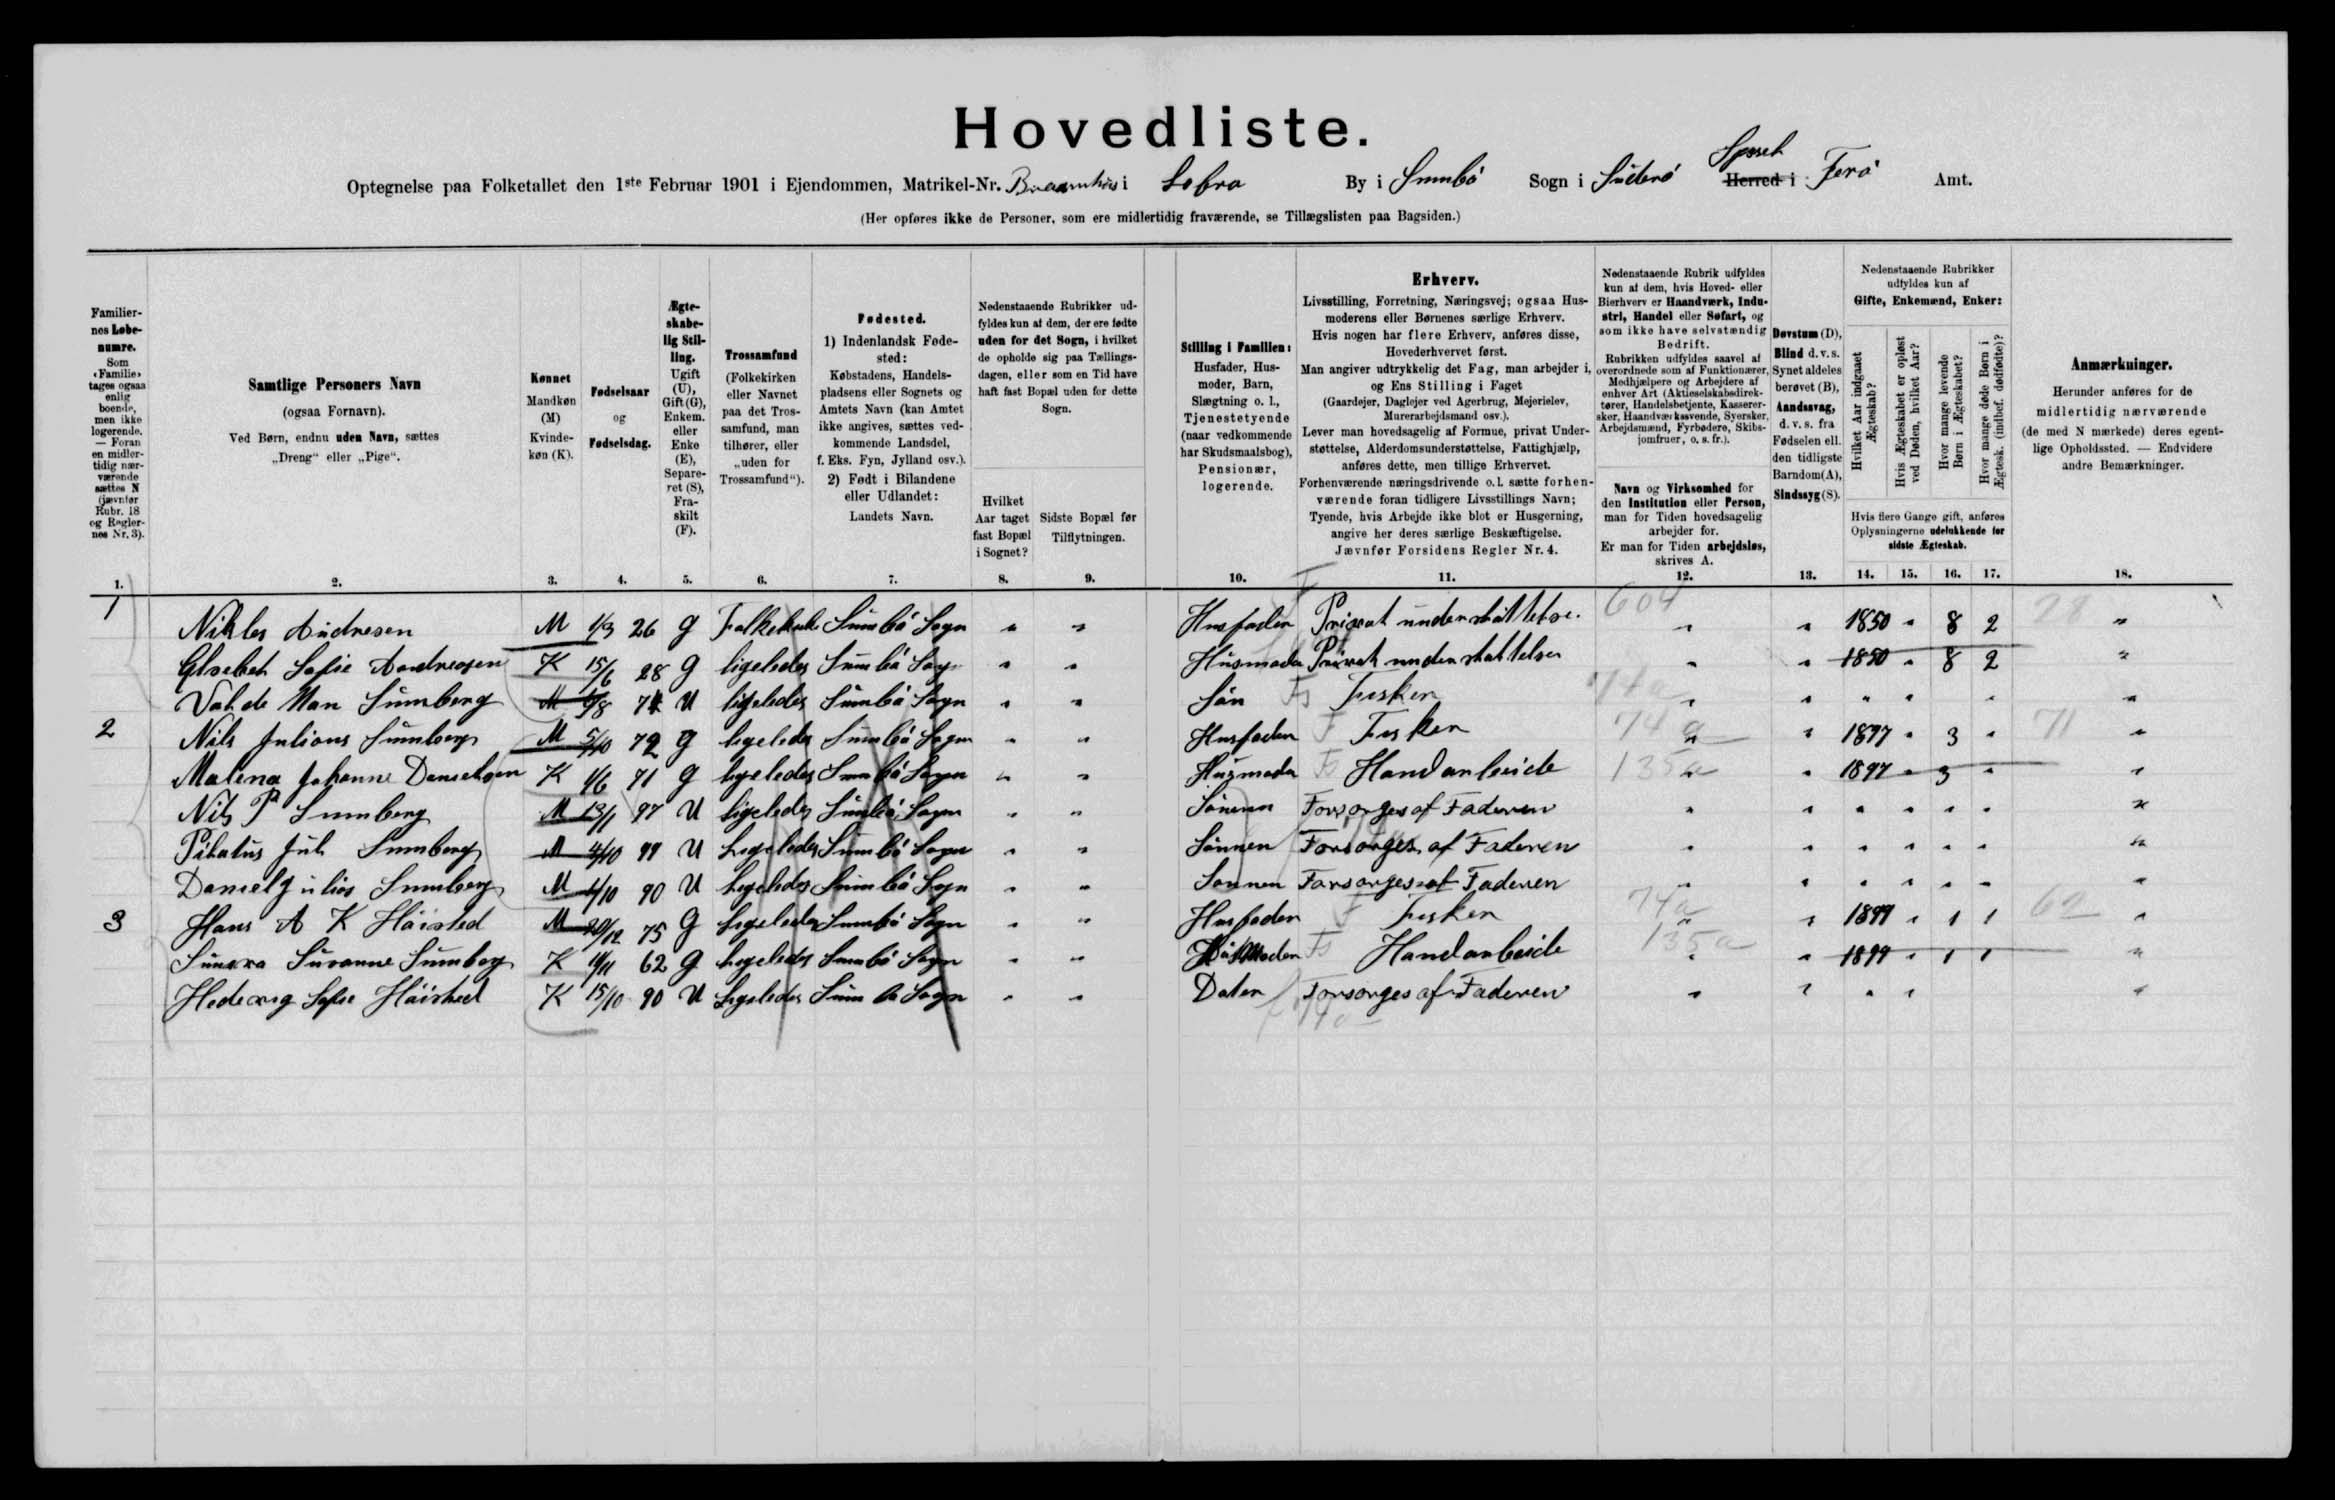 Hovedliste.
Optegnelse paa Folketallet den 1ste Februar 1901 i Ejendommen, Matrikel-Nr. i Lobra By i Sumbö Sogn i Süderö Syssel Herred i Ferö Amt.
(Her opføres ikke de Personer, som ere midlertidig fraværende, se Tillægslisten paa Bagsiden.)
Familiernes Løbenumre.
Som «Familie» tages ogsaa enlig boende, men ikke logerende. — Foran en midlertidig nærværende sættes N (jævnfør Rubr. 18 og Reglernes Nr. 3).
Samtlige Personers Navn
(ogsaa Fornavn).
Ved Børn, endnu uden Navn, sættes
„Dreng“ eller „Pige“.
Kønnet
Mandkøn
(M)
Kvindekøn (K).
Fødselsaar
og
Fødselsdag.
Ægteskabelig Stilling.
Ugift (U), Gift (G), Enkem. eller Enke (E), Separeret (S), Fraskilt (F).
Trossamfund
(Folkekirken eller Navnet paa det Trossamfund, man tilhører, eller „uden for Trossamfund“).
Fødested.
1) Indenlandsk Fødested:
Købstadens, Handelspladsens eller Sognets og Amtets Navn (kan Amtet ikke angives, sættes vedkommende Landsdel, f. Eks. Fyn, Jylland osv.).
2) Født i Bilandene eller Udlandet:
Landets Navn.
Nedenstaaende Rubrikker udfyldes kun af dem, der ere fødte uden for det Sogn, i hvilket de opholde sig paa Tællingsdagen, eller som en Tid have haft fast Bopæl uden for dette Sogn.
Hvilket Aar taget fast Bopæl i Sognet?
Sidste Bopæl før Tilflytningen.
Stilling i Familien:
Husfader, Husmoder, Barn, Slægtning o. l., Tjenestetyende (naar vedkommende har Skudsmaalsbog), Pensionær, logerende.
Erhverv.
Livsstilling, Forretning, Næringsvej; ogsaa Husmoderens eller Børnenes særlige Erhverv.
Hvis nogen har flere Erhverv, anføres disse, Hovederhvervet først.
Man angiver udtrykkelig det Fag, man arbejder i, og Ens Stilling i Faget
(Gaardejer, Daglejer ved Agerbrug, Mejerielev, Murerarbejdsmand osv.).
Lever man hovedsagelig af Formue, privat Understøttelse, Alderdomsunderstøttelse, Fattighjælp, anføres dette, men tillige Erhvervet.
Forhenværende næringsdrivende o. l. sætte forhenværende foran tidligere Livsstillings Navn;
Tyende, hvis Arbejde ikke blot er Husgerning, angive her deres særlige Beskæftigelse.
Jævnfør Forsidens Regler Nr. 4.
Nedenstaaende Rubrik udfyldes kun af dem, hvis Hoved- eller Bierhverv er Haandværk, Industri, Handel eller Søfart, og som ikke have selvstændig Bedrift.
Rubrikken udfyldes saavel af overordnede som af Funktionærer, Medhjælpere og Arbejdere af enhver Art (Aktieselskabsdirektører, Handelsbetjente, Kasserersker, Haandværkssvende, Syersker, Arbejdsmænd, Fyrbødere, Skibsjomfruer, o. s. fr.).
Navn og Virksomhed for den Institution eller Person, man for Tiden hovedsagelig arbejder for.
Er man for Tiden arbejdsløs, skrives A.
Døvstum (D), Blind d. v. s. Synet aldeles berøvet (B), Aandssvag, d. v. s. fra Fødselen ell. den tidligste Barndom (A), Sindssyg (S).
Nedenstaaende Rubrikker udfyldes kun af
Gifte, Enkemænd, Enker:
Hvilket Aar indgaaet Ægteskab?
Hvis Ægteskabet er opløst ved Døden, hvilket Aar?
Hvor mange levende Børn i Ægteskabet?
Hvor mange døde Børn i Ægtesk. (indbef. dødfødte)?
Hvis flere Gange gift, anføres Oplysningerne udelukkende for sidste Ægteskab.
Anmærkninger.
Herunder anføres for de midlertidig nærværende (de med N mærkede) deres egentlige Opholdssted. — Endvidere andre Bemærkninger.
1. 2. 3. 4. 5. 6. 7. 8. 9. 10. 11. 12. 13. 14. 15. 16. 17. 18.
1 Niklas Andresen M 1/3 26 G Folkekirke Sumbö Sogn " " Husfader F Privat understöttelse. 604 " " 1850 " 8 2 28 "
Elsebet Sofie Andreasen K 15/6 28 G ligeledes Sumbö Sogn " " Husmoder Privat understöttelse " " 1850 " 8 2 "
Sumberg M 74 U ligeledes Sumbö Sogn " " Sön Fs Fisker 74a " " " " " "
2 Nils Julions Sumberg M 5/10 72 G ligeledes Sumbö Sogn " " Husfader F Fisker 74a " " 1897 " 3 " 71 "
Malena Johanne Danielsen K 1/6 71 G ligeledes Sumbö Sogn " " Husmoder Fs Handarbeide 135a " " 1897 " 3 " "
Nils P Sumberg M 13/1 97 U ligeledes Sumbö Sogn " " Sönnen Forsorges af Faderen " " " " " " "
Pihatus Jul Sumberg M 4/10 99 U Ligeledes Sumbö Sogn " " Sönnen Forsorges af Faderen " " " " " " "
Daniel Julius Sumberg M 1/10 90 U ligeledes Sumbö Sogn " " Sönnen Forsorges af Faderen " " " " " " "
3 Hans A K Höisted M 20/12 75 G ligeledes Sumbö Sogn " " Husfader F Fisker 74a " " 1899 " 1 1 62 "
Susanne Sumberg K 11/11 62 G ligeledes Sumbö Sogn " " Husmoder Fs Handarbeide 135a " " 1899 " 1 1 "
Hedevig Sofie Höisted K 15/10 90 U Ligeledes Sumbö Sogn " " Dater Forsorges af Faderen " " " " "